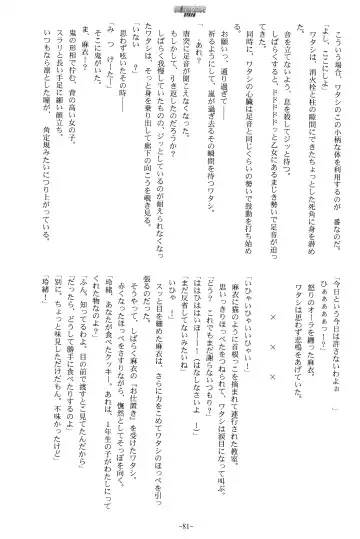 こういう場合、ワタシのこの小柄な体を利用するのが一番なのだ。
「ここにしよ」
ワタシは、消火栓と柱の隙間にできたちょっとした死角に身を潜め
音を立てないよう、息を殺してジッと待つ。
しばらくすると、ドドドドドッと乙女にあるまじき勢いで足音が迫っ
て来る。ワタシの心臓は足音と同じくらいの勢いで鼓動を打ち始め
る。
お願いっ、通り過ぎて――
祈るようにして、嵐が過ぎ去るその瞬間を待つワタシ。
「……あれ？」
唐突に足音が聞こえなくなった。
もしかして、引き返したのだろうか？
しばらく我慢していたものの、ジッとしているのが耐えられなくなっ
たワタシは、そっと身を乗り出して廊下の向こうを覗き見る。
「いない　？」
「み　つ　け　たー」
思わず呟いたその時――
「ま、麻衣！？」
そこに鬼がいた。
鬼の形相で佇む、背の高い女の子。
スラリと長い手足に細い顔立ち。
いつもなら凛とした瞳が、角定規みたいにつり上がっている。
「今日という今日は許さないわよぉ」
「ひぁぁぁぁぁっ！」
怒りのオーラを纏った麻衣。
ワタシは思わず悲鳴をあげていた。
×　×　×
「いひゃいひゃいいひゃい！」
麻衣に猫のように首根っこを掴まれて連行された教室。
思いっきりほっぺたをつねられて、ワタシは涙目になって叫ぶ。
「どう？　これでもまだ謝らないつもり？」
「ははひはいほー！　はなしなさいよ　ー」
「まだ反省してないみたいね」
「いひゃ　！」
スッと目を細めた麻衣は、さらに力をこめてワタシのほっぺを引っ
張るのだった。
そうやって、しばらく麻衣の『お仕置き』を受けたワタシ。
赤くなったほっぺをさすりながら、憮然としてそっぽを向く。
「玲緒、あなたが食べたクッキー。あれは、１年生の子がわたしにって
くれた物なのよ？」
「ふん。知ってるわよ。目の前で渡すとこ見てたんだから」
「だったら、どうして勝手に食べたりするのよ」
「別に。ちょっと味見しただけだもん。不味かったけど」
「玲緒！」
-81-